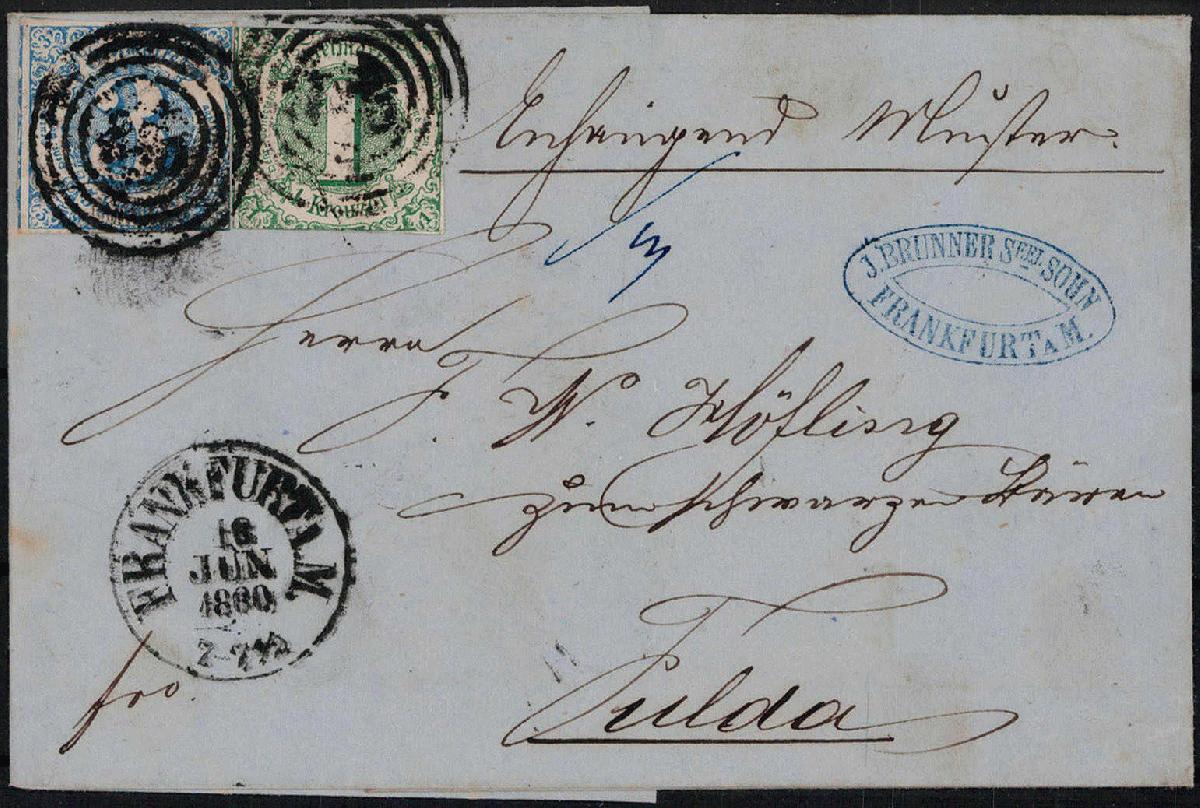 1
1. Kreuzer
Anhangend Muster.
J. BRUNNER SEEL. SOHN
FRANKFURT A M.
Herrn
F. W. Höfling
zum schwarzen Bären
FRANKFURT A. M.
16
JUN
1860
7-7½
fro.
Fulda